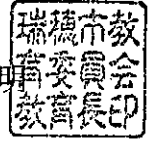 明
瑞穂市教
育委員会
教育長印